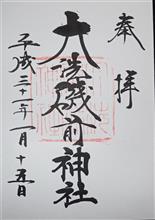 奉拝
大洗磯前神社
平成三十一年一月十五日